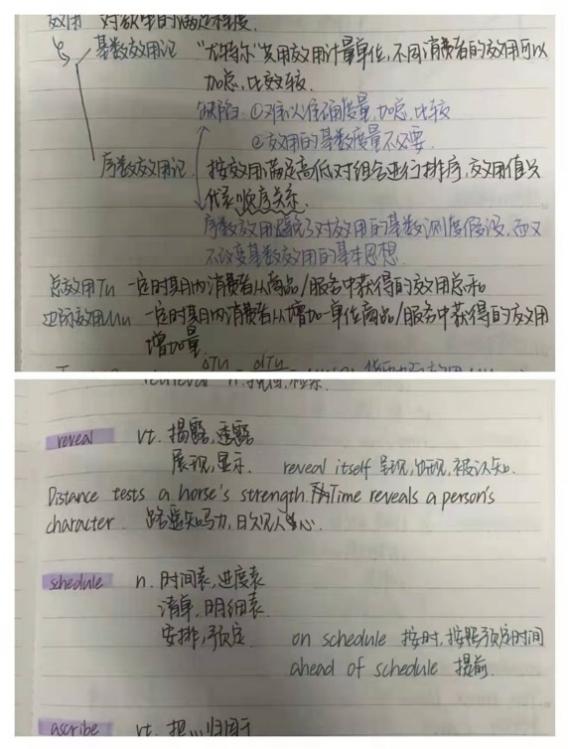 效用 对欲望的满足程度
基数效用论 "尤特尔"类用效用计量单位,不同消费者的效用可以
加总,比较.
缺陷 ①难以准确度量,加总,比较
②效用的基数度量不必要.
序数效用论 按效用满足高低对组合进行排序,效用值只
代表顺序关系.
序数效用避免了对效用的基数测度假设,而又
不改变基数效用的基本思想.
总效用Tu 一定时期内消费者从商品/服务中获得的效用总和
边际效用Mu 一定时期内消费者从增加一单位商品/服务中获得的效用
增加量.
reveal vt. 揭露,透露
展现,显示. reveal itself 呈现,出现,被认知.
Distance tests a horse's strength. Time reveals a person's
character. 路遥知马力,日久见人心.
schedule n. 时间表,进度表
清单,明细表.
安排,预定 on schedule 按时,按照预定时间
ahead of schedule 提前
ascribe vt. 把...归因于